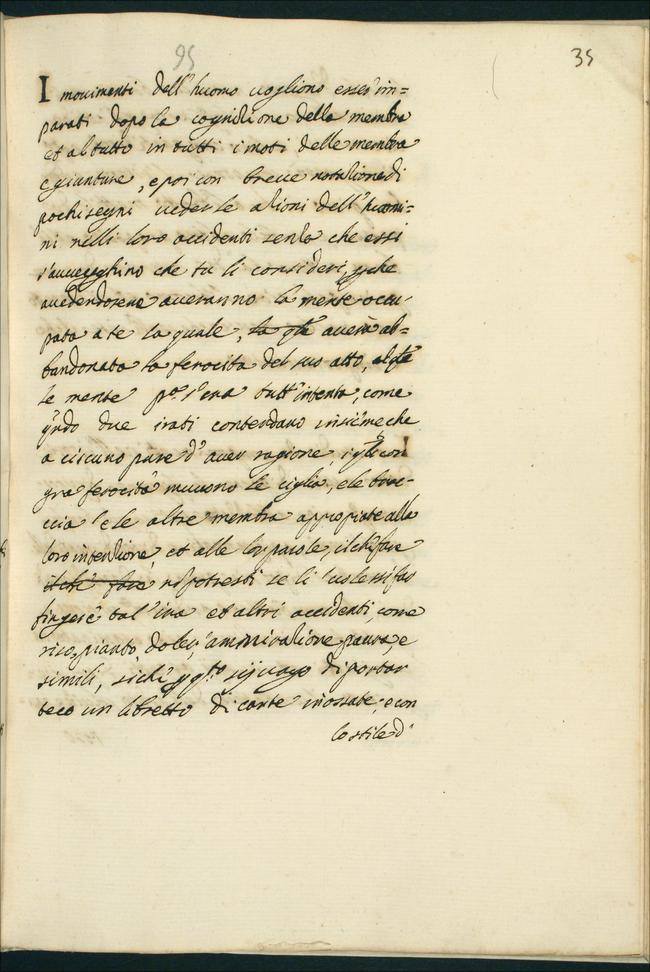 95
35
I movimenti dell'huomo vogliono esser im=
parati dopo la cognitione delle membra
et al tutto in tutti i moti delle membra
e giunture, e poi con breve notatione di
pochi segni veder le ationi dell'huomi=
ni nelli loro accidenti senza che essi
s'avveghino che tu li consideri, pche
avedendosene averanno la mente occu-
pata a te la quale, la qle averà ab=
bandonata la ferocita del suo atto, al qle
la mente pa. era tutt'intenta, come
qndo due irati contendano insieme, che
a ciscuno pare d'aver ragione, i qli con
gra ferocità muovono le ciglia, e le brac-
cia e le altre membra appropiate alla
loro intentione, et alle lor parole, il che fare
il che fare no potresti se li volessi far
fingere tal'ira et altri accidenti, come
riso, pianto dolor, ammiratione, paura, e
simili, siche p qsto sij vago di portar
teco un libretto di carte inossate, e con
lo stile d'